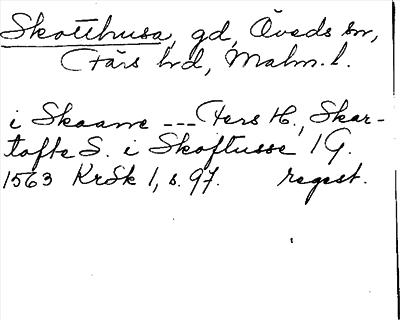 Skotthusa, gd, Öveds sn,
Färs hd, Malm. l.
i Skaane --- Fers H., Skar-
tofte S. i Skoftusse 1 G.
1563 KrSk 1, s. 97. regest.